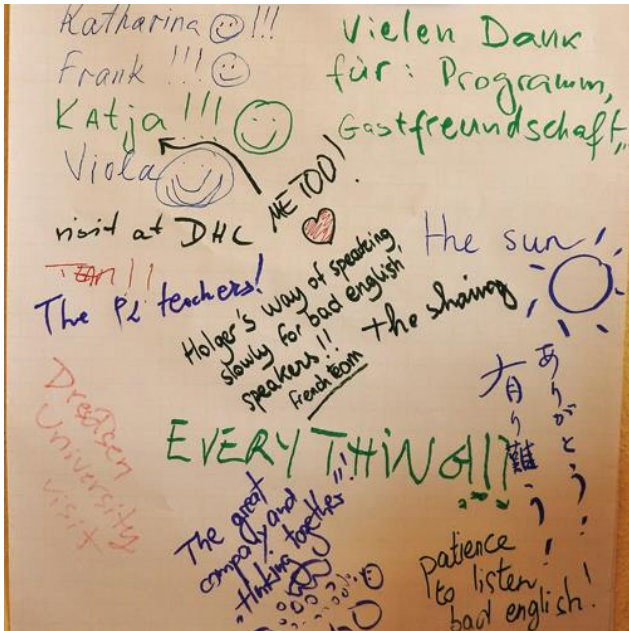 Katharina !!!
Frank !!!
Katja !!!
Viola
Vielen Dank
für: Programm,
Gastfreundschaft,,
ME TOO!
visit at DHC
TEAM!!
The PL teachers!
Holger's way of speaking,
slowly for bad english
speakers!!
french team
the sun
the sharing
ありがとう!
有り難う!
Dresden
University
visit
EVERYTHING!!!
The great
company and
thinking together!!!
patience
to listen
bad english!